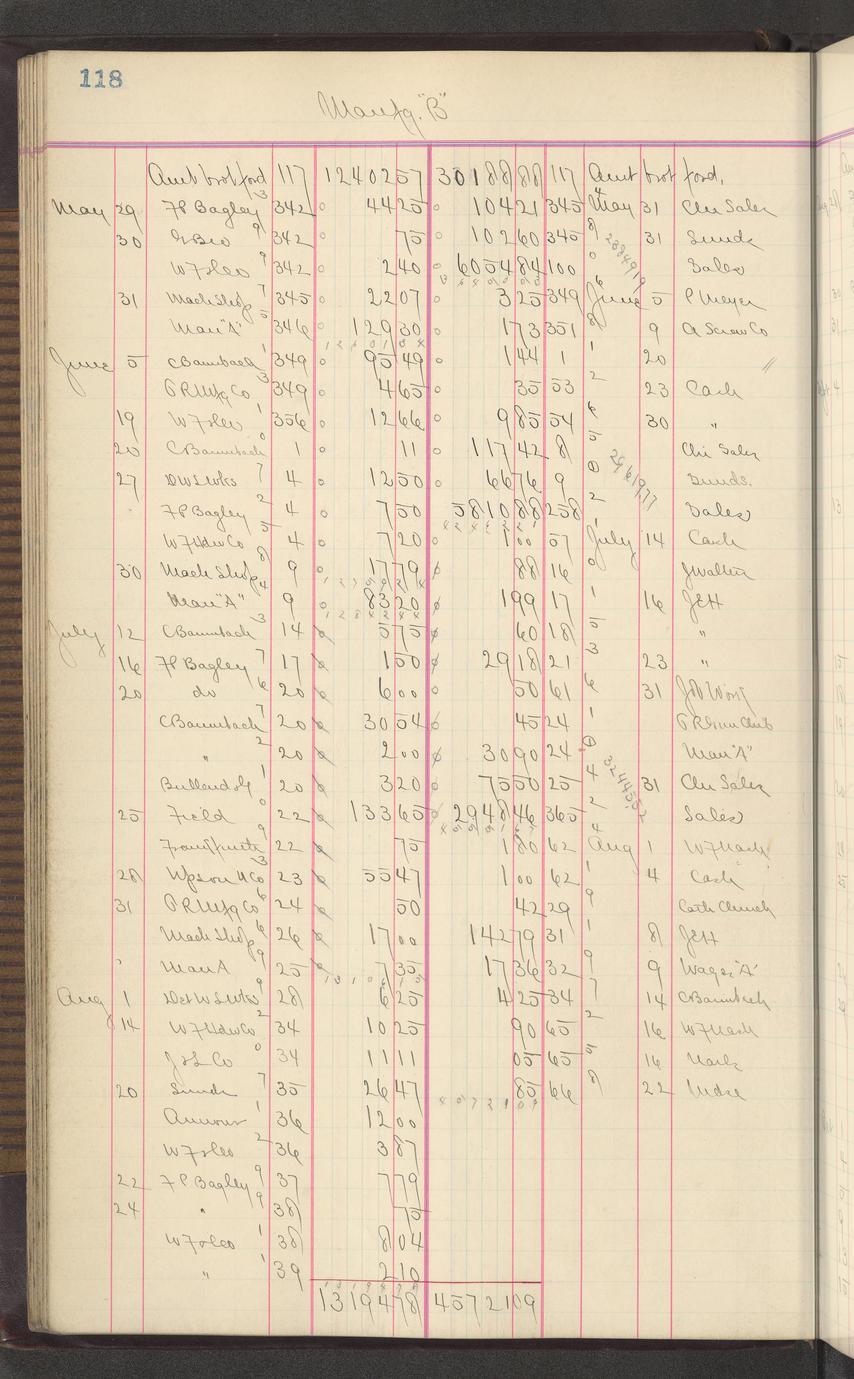 118
Manfg. "B"
Amt brot ford 117 12402 57 30188 88 117 Amt brot ford.
May 29 F P Bagley 342 44 25 104 21 345 May 31 Chi Sales
30 & Bro 342 75 102 60 345 31 Sunds
W F & Co 342 2 40 6054 84 100 Sales
31 Mach Shop 345 22 07 3 25 349 June 5 P Meyer
Man "A" 346 129 30 1 73 351 9 A Screw Co
June 5 C Baumbach 349 95 49 1 44 1 20
P R Mfg Co 349 4 65 35 53 23 Cash
19 W F & Co 356 12 66 9 85 54 30 "
20 C Baumbach 1 11 117 42 8 Chi Sales
27 D W L Wks 4 12 50 66 76 9 Sunds.
F P Bagley 4 7 50 5810 88 258 Sales
W F Hdw Co 4 7 20 1 00 57 July 14 Cash
30 Mach Shop 9 17 79 88 16 J Walter
Man "A" 9 83 20 1 99 17 16 J E H
July 12 C Baumbach 14 5 75 60 18 "
16 F P Bagley 17 1 50 29 18 21 23 "
20 do 20 6 00 50 61 31
C Baumbach 20 30 54 45 24 P R Gun Club
" 20 2 00 30 90 24 Man "A"
20 3 20 75 50 25 31 Chi Sales
25 Field 22 133 65 2948 46 365 Sales
22 75 1 80 62 Aug 1 W F Mach
28 23 55 47 1 00 62 4 Cash
31 P R Mfg Co 24 50 42 29 Cath Church
Mach Shop 26 17 00 142 79 31 8 J E H
" Man A 25 7 35 17 36 32 9 Wages "A"
Aug 1 Det W L Wks 28 6 25 4 25 34 14 C Baumbach
14 W F Hdw Co 34 10 25 90 65 16 W F Mach
J & L Co 34 11 11 05 65 16
20 Sunds 35 26 47 85 66 22 Mdse
Armour 36 12 00
W F & Co 36 3 87
22 F P Bagley 37 7 79
24 " 38 75
W F & Co 38 8 04
" 39 2 10
13194 78 45721 09